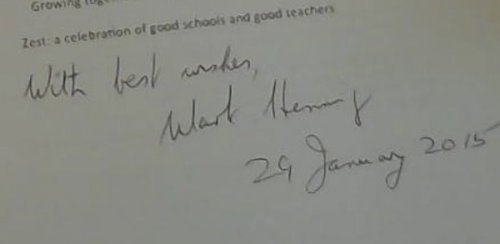 Growing
Zest: a celebration of good schools and good teachers
With best wishes,
29 January 2015